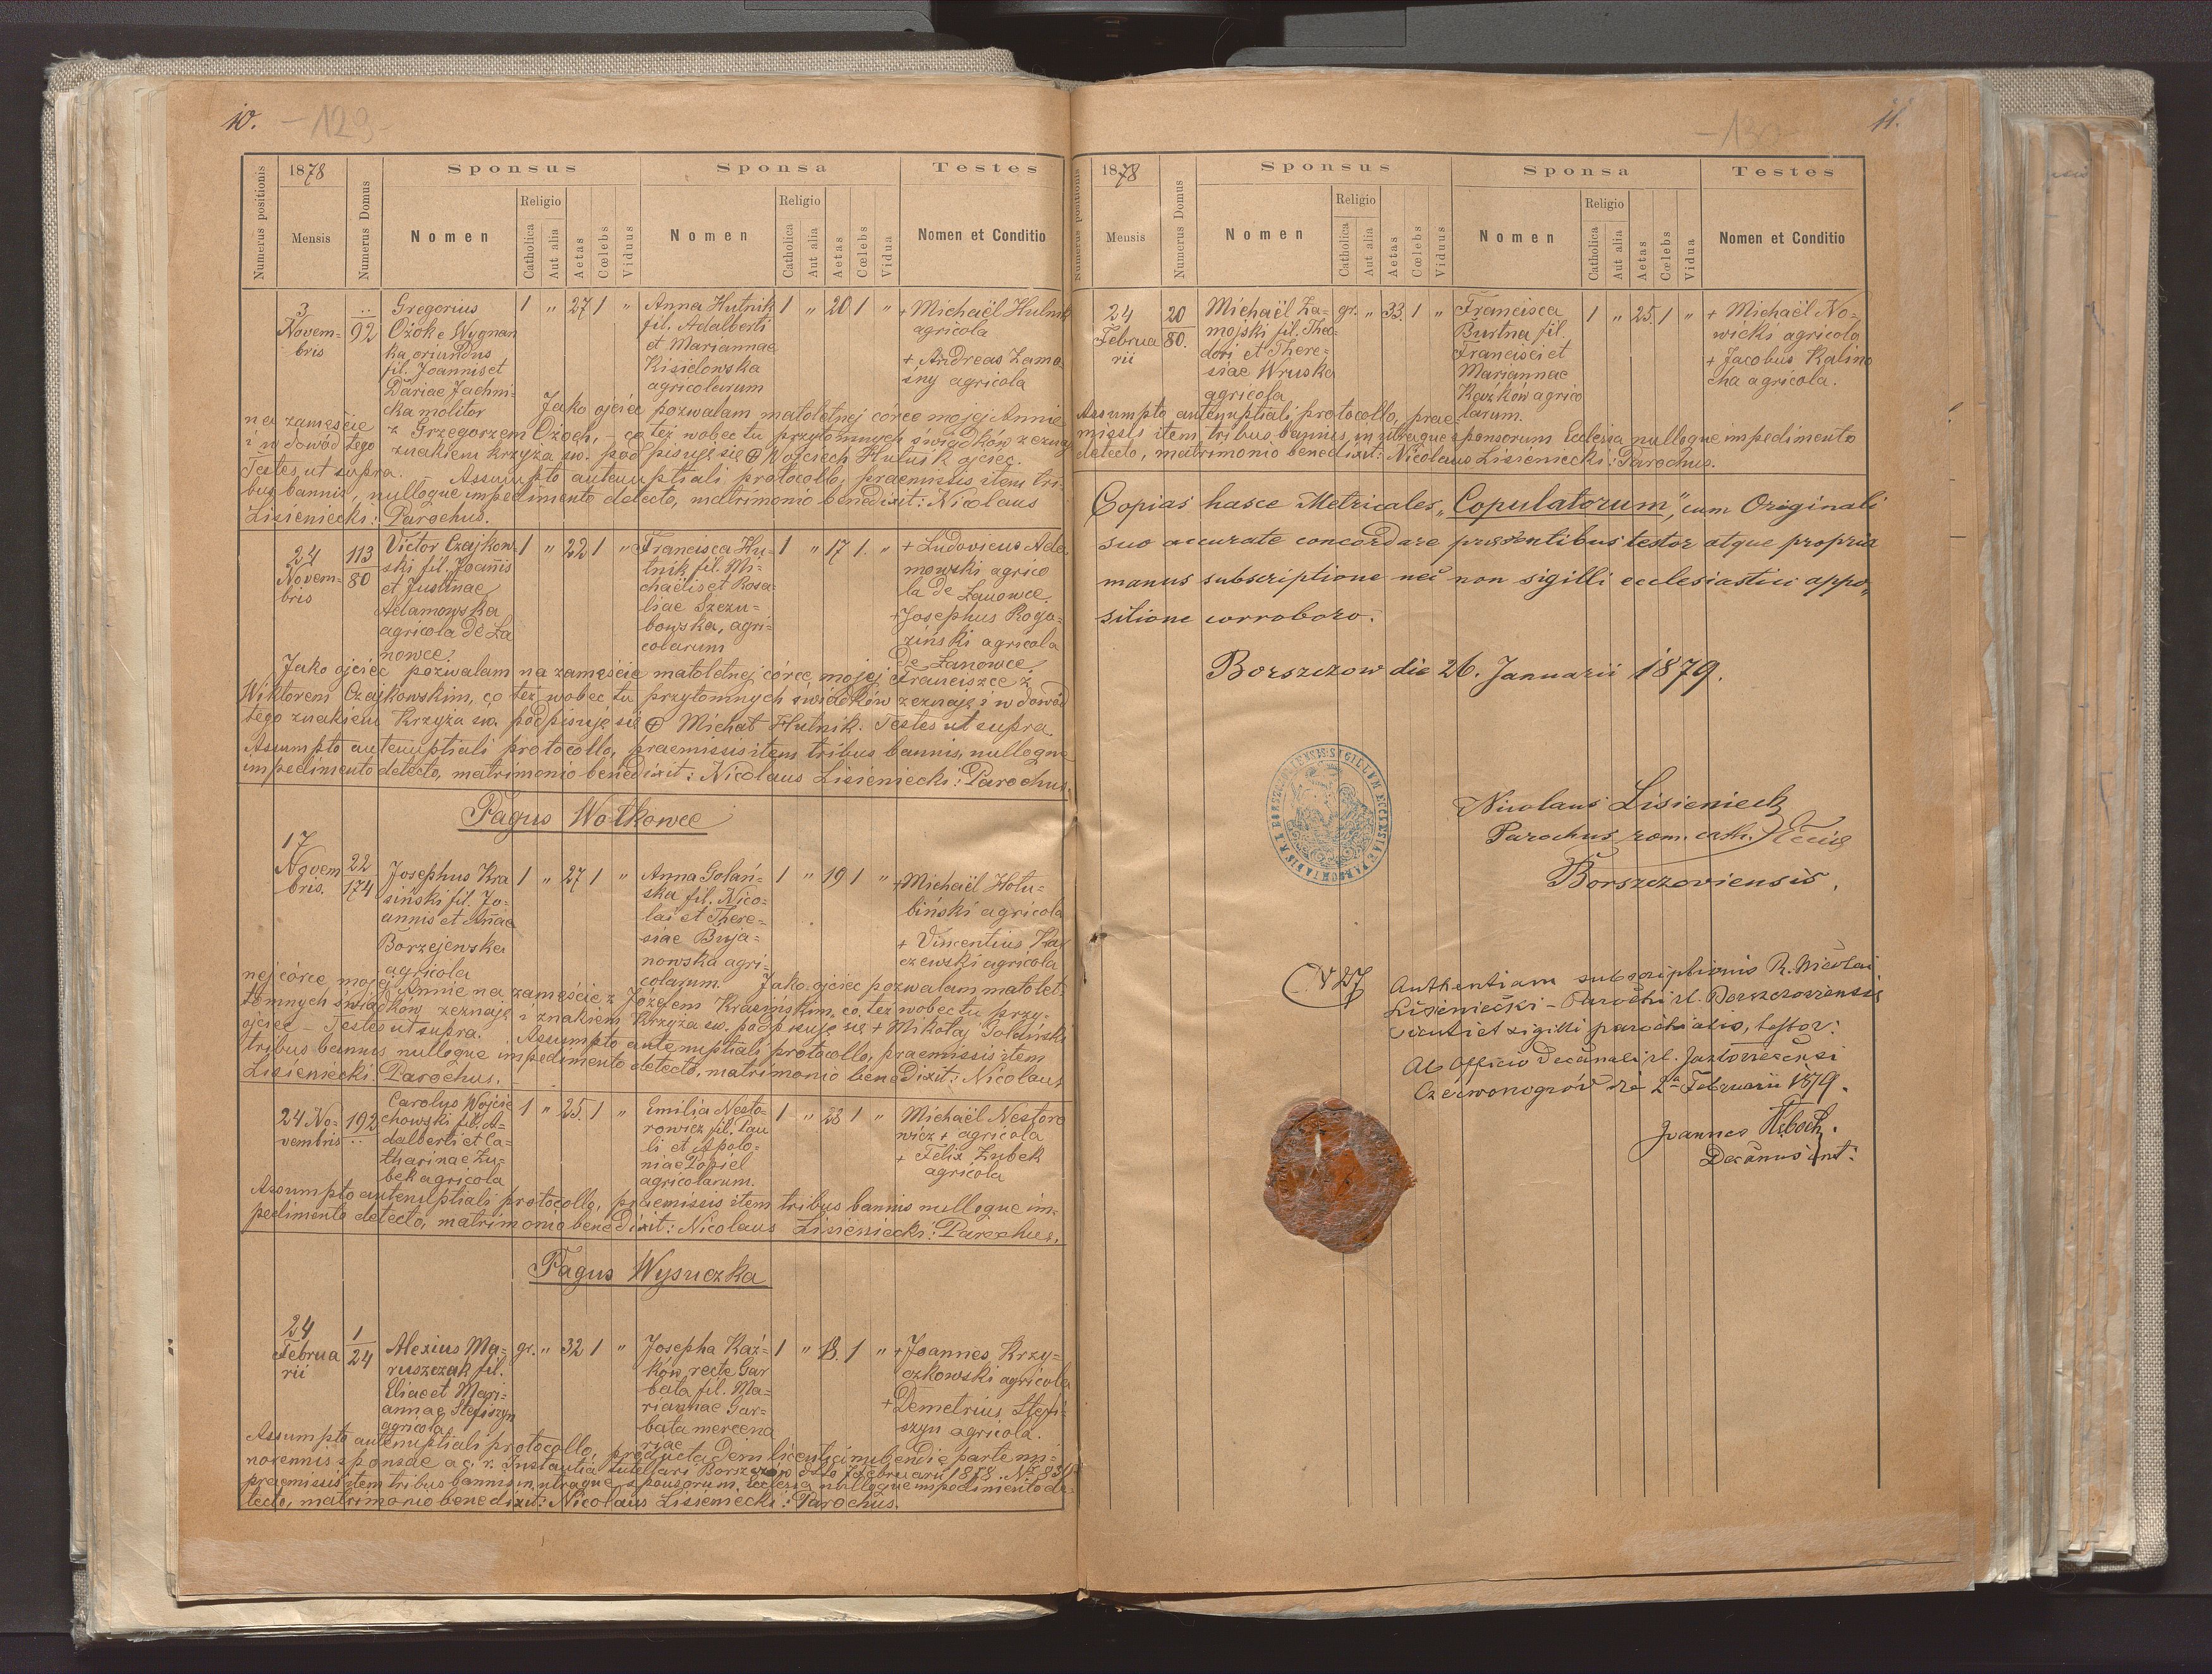 10.
- 129 -
Numerus positionis
1878
Mensis
Numerus Domus
Sponsus
Nomen
Religio
Catholica
Aut alia
Aetas
Cœlebs
Viduus
Sponsa
Nomen
Religio
Catholica
Aut alia
Aetas
Cœlebs
Vidua
Testes
Nomen et Conditio
3
Novem-
bris
92
Gregorius
Ożoke Wygnan
ka oriundus
fil. Joannis et
Dariae Jachni-
cka molitor
1 " 27 1 "
Anna Hutnik
fil. Adalberti
et Mariannae
Kisielowska
agricolarum
1 " 20 1 "
+ Michaël Hutnik
agricola
+ Andreas Zamo-
śny agricola
Jako ojciec pozwalam małoletnej córce mojej Annie
na zamęście z Grzegorzem Ożoch, - co też wobec tu przytomnych świadków zeznaję
i w dowód tego znakiem krzyża św. podpisuję się + Wojciech Hutnik ojciec.
Testes ut supra. Assumpto antenuptiali protocollo, praemissis item tri-
bus bannis, nulloque impedimento detecto, matrimonio benedixit: Nicolaus
Lisieniecki: Parochus.
24
Novem-
bris
113
80
Victor Czajkow-
ski fil. Joannis
et Justinae
Adamowska
agricola de La
nowce.
1 " 22 1 "
Francisca Hu-
tnik fil. Mi-
chaëlis et Rosa-
liae Szczu-
bowska, agri-
colarum
1 " 17 1. "
+ Ludovicus Ada-
mowski agrico
la de Lanowce.
+ Josephus Rogo-
ziński agricola
de Lanowce.
Jako ojciec pozwalam na zamęście małoletnej córce mojej Franciszce z
Wiktorem Czajkowskim, co też wobec tu przytomnych świadków zeznaję i w dowód
tego znakiem Krzyża św. podpisuję się + Michał Hutnik. Testes ut supra.
Assumpto antenuptiali protocollo, praemissis item tribus bannis, nulloque
impedimento detecto, matrimonio benedixit: Nicolaus Lisieniecki: Parochus.
Pagus Wołkowce
17
Novem
bris.
22
174
Josephus Kra
siński fil. Jo-
annis et Annae
Borzejewska
agricola
1 " 27 1 "
Anna Golań-
ska fil. Nico-
lai et There-
siae Buja-
nowska agri-
colarum.
1 " 19 1 "
+ Michaël Hołu-
biński agricola
+ Vincentius Ka
czewski agricola
Jako ojciec pozwalam małolet-
nej córce mojej Annie na zamęście z Józefem Krasińskim, co też wobec tu przy-
tomnych świadków zeznaję i znakiem Krzyża św. podpisuję się + Mikołaj Golański
ojciec - Testes ut supra. Assumpto antenuptiali protocollo, praemissis item
tribus bannis nulloque impedimento detecto, matrimonio benedixit: Nicolaus
Lisieniecki: Parochus.
24 No-
vembris
192
Carolus Wojcie
chowski fil. A-
dalberti et Ca-
tharinae Zu-
bek agricola
1 " 25. 1 "
Emilia Nesto-
rowicz fil. Pau
li et Apolo-
niae Popiel
agricolarum.
1 " 23 1 "
Michaël Nestoro
wicz + agricola
+ Felix Zubek
agricola
Assumpto antenuptiali protocollo, praemissis item tribus bannis nulloque im-
pedimento detecto, matrimonio benedixit: Nicolaus Lisieniecki: Parochus.
Pagus Wysuczka
24
Februa
rii
1
24
Alexius Ma-
ruszczak fil.
Eliae et Mari-
annae Stefiszyn
agricola
gr. " 32 1 "
Josepha Kaź-
ków recte Gar
bata fil. Ma-
riannae Gar-
bata mercena
riae
1 " 18. 1 "
+ Joannes Krzy-
czkowski agricola
+ Demetrius Stefi-
szyn agricola.
Assumpto antenuptiali protocollo, producta item licentia nubendi e parte mi-
norennis sponsae a c. r. Instantia tutellari Borszczów ddto Februarii 1878. Nr 831
praemissis item tribus bannis in utraque sponsorum Ecclesia nulloque impedimento de-
tecto, matrimonio benedixit: Nicolaus Lisieniecki: Parochus.
11.
- 130 -
Numerus positionis
1878
Mensis
Numerus Domus
Sponsus
Nomen
Religio
Catholica
Aut alia
Aetas
Cœlebs
Viduus
Sponsa
Nomen
Religio
Catholica
Aut alia
Aetas
Cœlebs
Vidua
Testes
Nomen et Conditio
24
Februa
rii
20
80.
Michaël Za-
mojski fil. Theo-
dori et There-
siae Wruska
agricola
gr. " 33. 1 "
Francisca
Burtna fil.
Francisci et
Mariannae
Kaźków agrico
larum.
1 " 25. 1 "
+ Michaël No-
wicki agricola
+ Jacobus Kalino
cha agricola.
Assumpto antenuptiali protocollo, prae-
missis item tribus bannis, in utraque sponsorum Ecclesia nulloque impedimento
detecto, matrimonio benedixit: Nicolaus Lisieniecki: Parochus.
Copias hasce Metricales „Copulatorum", cum Originali
suo accurate concordare praesentibus testor atque propria
manus subscriptione nec non sigilli ecclesiastici appo-
sitione corroboro.
Borszczow die 26. Januarii 1879.
SIGILLUM ECCLESIAE PAROCHIALIS R. L. BORSZCZOVIENSIS
Nicolaus Lisieniecki
Parochus rom. cath. Eccl
Borszczoviensis.
N 27
Authentiam subscriptionis R. Nicolai
Lisieniecki - Parochi rl. Borszczoviensis
sicuti et sigilli parochialis, testor:
Ab Officio Decanali rl. Jazłoviecensi
Czerwonogród die 2a Februarii 1879.
Joannes
Decanus